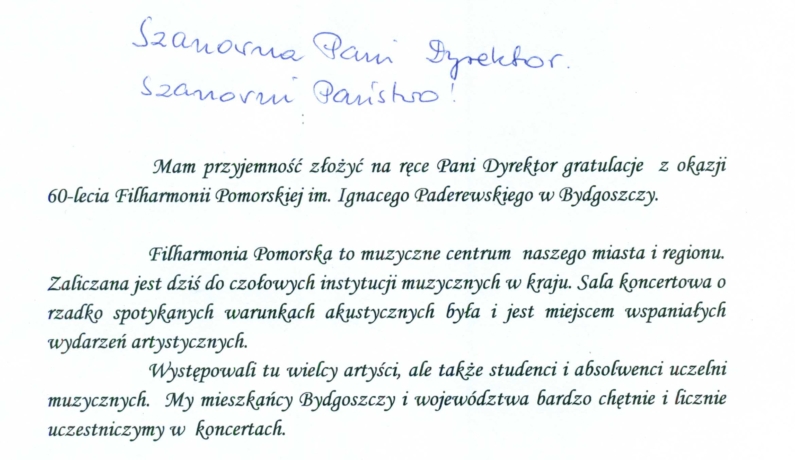 Szanowna Pani Dyrektor.
Szanowni Państwo!
Mam przyjemność złożyć na ręce Pani Dyrektor gratulacje z okazji
60-lecia Filharmonii Pomorskiej im. Ignacego Paderewskiego w Bydgoszczy.
Filharmonia Pomorska to muzyczne centrum naszego miasta i regionu.
Zaliczana jest dziś do czołowych instytucji muzycznych w kraju. Sala koncertowa o
rzadko spotykanych warunkach akustycznych była i jest miejscem wspaniałych
wydarzeń artystycznych.
Występowali tu wielcy artyści, ale także studenci i absolwenci uczelni
muzycznych. My mieszkańcy Bydgoszczy i województwa bardzo chętnie i licznie
uczestniczymy w koncertach.